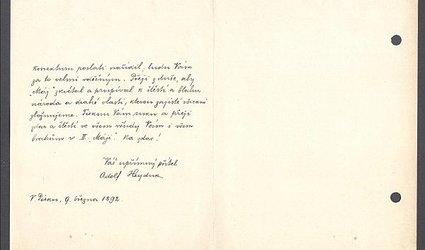 konečnem poslati nařídil, budu Vám
za to velmi vděčným. Přeji z duše, aby
"Máj" zkvétal a prospíval k štěstí a blahu
národa a drahé vlasti, kterou zajisté všichni
zbožňujeme. Tisknu Vám ruku a přeji
zdar a štěstí ve všem všudy Vám i všem
bratrům v "Máji". Na zdar!
Váš upřímný přítel
Adolf Heyduk
V Písku, 9. března 1892.